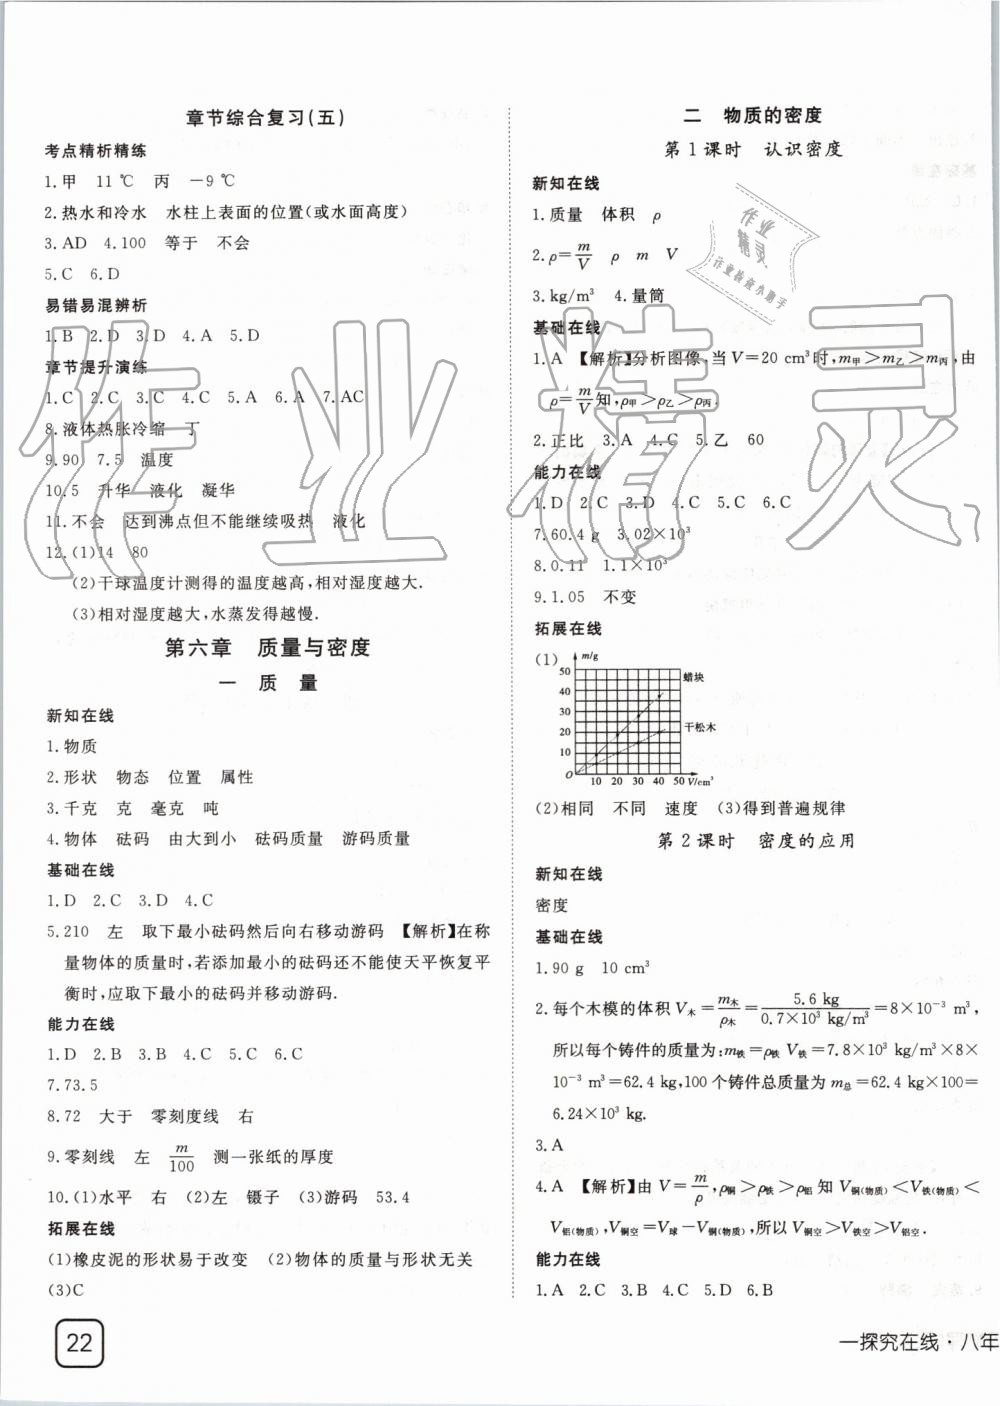 章节综合复习(五)
考点精析精练
1.甲　11 ℃　丙　－9 ℃
2.热水和冷水　水柱上表面的位置(或水面高度)
3.AD　4.100　等于　不会
5.C　6.D
易错易混辨析
1.B　2.D　3.D　4.A　5.D
章节提升演练
1.C　2.C　3.C　4.C　5.A　6.A　7.AC
8.液体热胀冷缩　丁
9.90　7.5　温度
10.5　升华　液化　凝华
11.不会　达到沸点但不能继续吸热　液化
12.(1)14　80
(2)干球温度计测得的温度越高,相对湿度越大.
(3)相对湿度越大,水蒸发得越慢.
第六章　质量与密度
一　质　量
新知在线
1.物质
2.形状　物态　位置　属性
3.千克　克　毫克　吨
4.物体　砝码　由大到小　砝码质量　游码质量
基础在线
1.D　2.C　3.D　4.C
5.210　左　取下最小砝码然后向右移动游码　【解析】在称
量物体的质量时,若添加最小的砝码还不能使天平恢复平
衡时,应取下最小的砝码并移动游码.
能力在线
1.D　2.B　3.B　4.C　5.C　6.C
7.73.5
8.72　大于　零刻度线　右
9.零刻线　左　m/100　测一张纸的厚度
10.(1)水平　右　(2)左　镊子　(3)游码　53.4
拓展在线
(1)橡皮泥的形状易于改变　(2)物体的质量与形状无关
(3)C
22
二　物质的密度
第1课时　认识密度
新知在线
1.质量　体积　ρ
2.ρ=m/V　ρ　m　V
3.kg/m³　4.量筒
基础在线
1.A　【解析】分析图像,当V=20 cm³时,m甲>m乙>m丙,由
ρ=m/V知,ρ甲>ρ乙>ρ丙.
2.正比　3.A　4.C　5.乙　60
能力在线
1.D　2.C　3.D　4.C　5.C　6.C
7.60.4 g　3.02×10³
8.0.11　1.1×10³
9.1.05　不变
拓展在线
(1)
m/g
50
40
30
20
10
O
10 20 30 40 50 V/cm³
蜡块
干松木
(2)相同　不同　速度　(3)得到普遍规律
第2课时　密度的应用
新知在线
密度
基础在线
1.90 g　10 cm³
2.每个木模的体积V木=m木/ρ木=5.6 kg/0.7×10³ kg/m³=8×10⁻³ m³,
所以每个铸件的质量为:m铁=ρ铁V铁=7.8×10³ kg/m³×8×
10⁻³ m³=62.4 kg,100个铸件总质量为m总=62.4 kg×100=
6.24×10³ kg.
3.A
4.A　【解析】由V=m/ρ,ρ铜>ρ铁>ρ铝知V铜(物质)<V铁(物质)<
V铝(物质),V铜空=V球-V铜(物质),所以V铜空>V铁空>V铝空.
能力在线
1.A　2.C　3.B　4.C　5.D　6.B
一探究在线·八年
作业精灵
作业
精灵
作业检查小助手